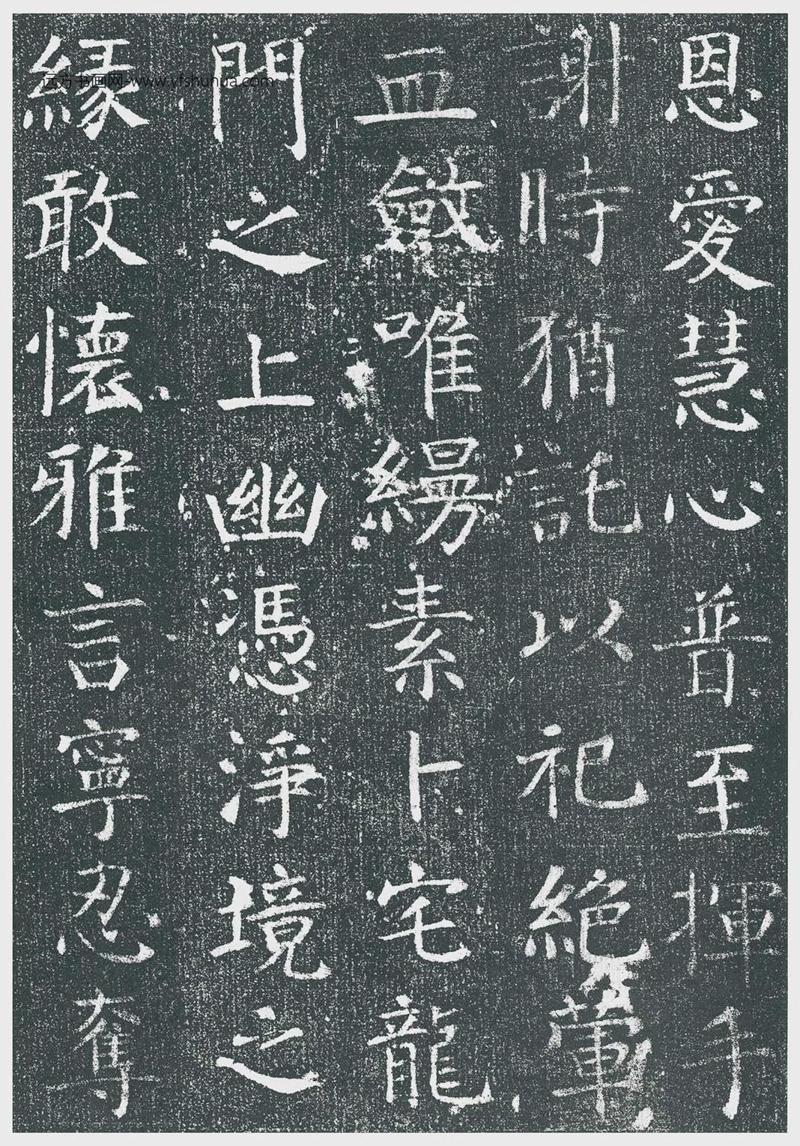 恩愛慧心普至揮手
謝時猶託以祀絕葷
血斂唯縵素卜宅龍
門之上幽憑淨境之
緣敢懷雅言寧忍奪
远方书画网 www.yfshuhua.com